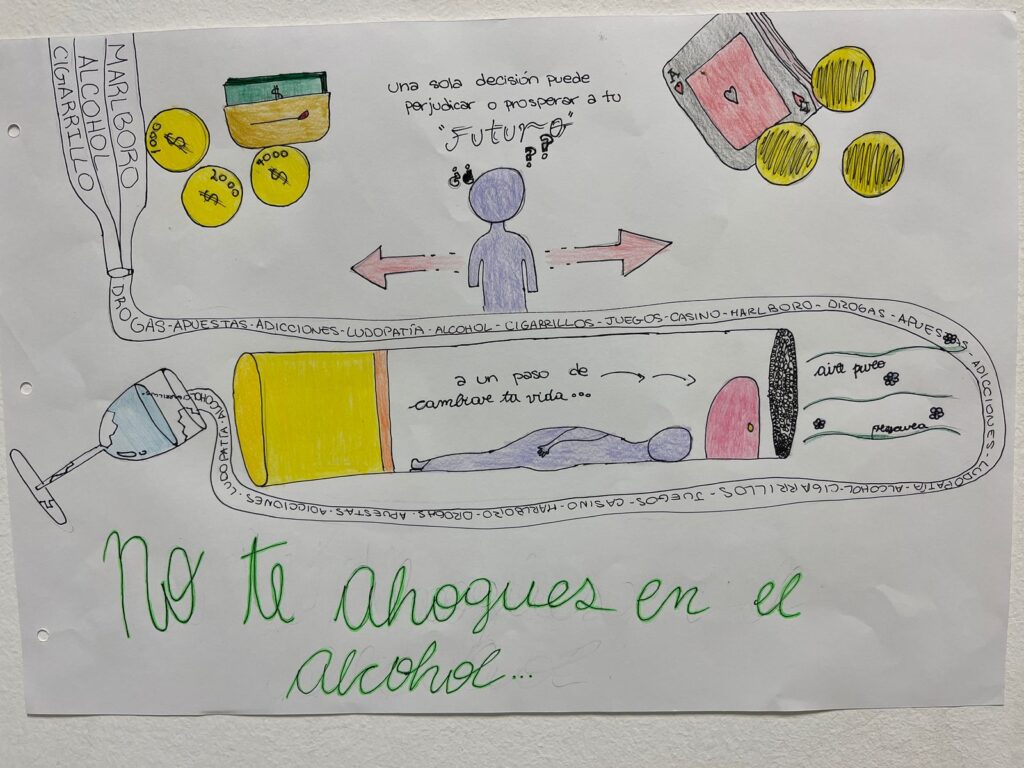 MARLBORO
ALCOHOL
CIGARRILLO
$
1000
$
2000
$
4000
$
una sola decisión puede
perjudicar o prosperar a tu
"FUTURO"
A
A
DROGAS-APUESTAS-ADICCIONES-LUDOPATÍA-ALCOHOL-CIGARRILLOS-JUEGOS-CASINO-MARLBORO-DROGAS-APUESTAS-ADICCIONES-
LUDOPATÍA-ALCOHOL-CIGARRILLOS-JUEGOS-CASINO-MARLBORO-DROGAS-APUESTAS-ADICCIONES-LUDOPATÍA-ALCOHOL
a un paso de
cambiar tu vida...
aire puro
No te ahogues en el
alcohol...